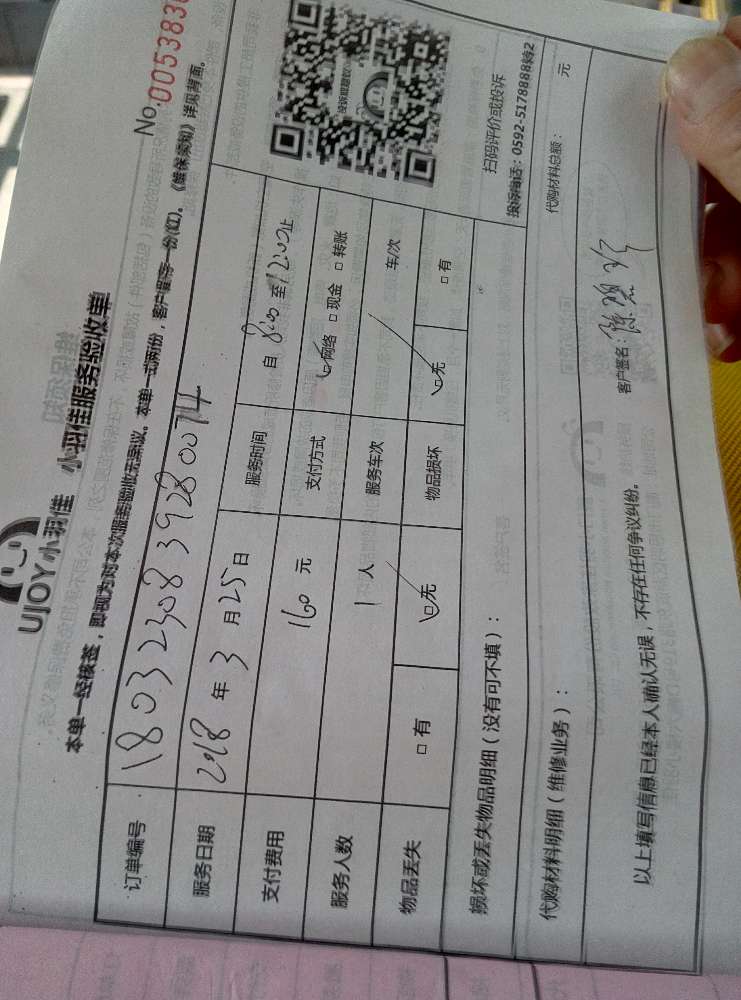 UJOY小羽佳 小羽佳服务验收单
No.005383
本单一经核签，即视为对本次服务验收无异议。本单一式两份，客户留存一份(红)。《维保须知》详见背面。
订单编号 180323083928 0074
服务日期 2018 年 3 月 25 日 服务时间 自 8:00 至 12:00 止
支付费用 160 元 支付方式 ☑网络 □现金 □转账
服务人数 1 人 服务车次 / 车/次
物品丢失 □有 ☑无 物品损坏 ☑无 □有
投诉或建议
扫码评价或投诉
投诉电话：0592-5178888转2
损坏或丢失物品明细（没有可不填）：
代购材料明细（维修业务）： 代购材料总额： 元
以上填写信息已经本人确认无误，不存在任何争议纠纷。 客户签名：陈